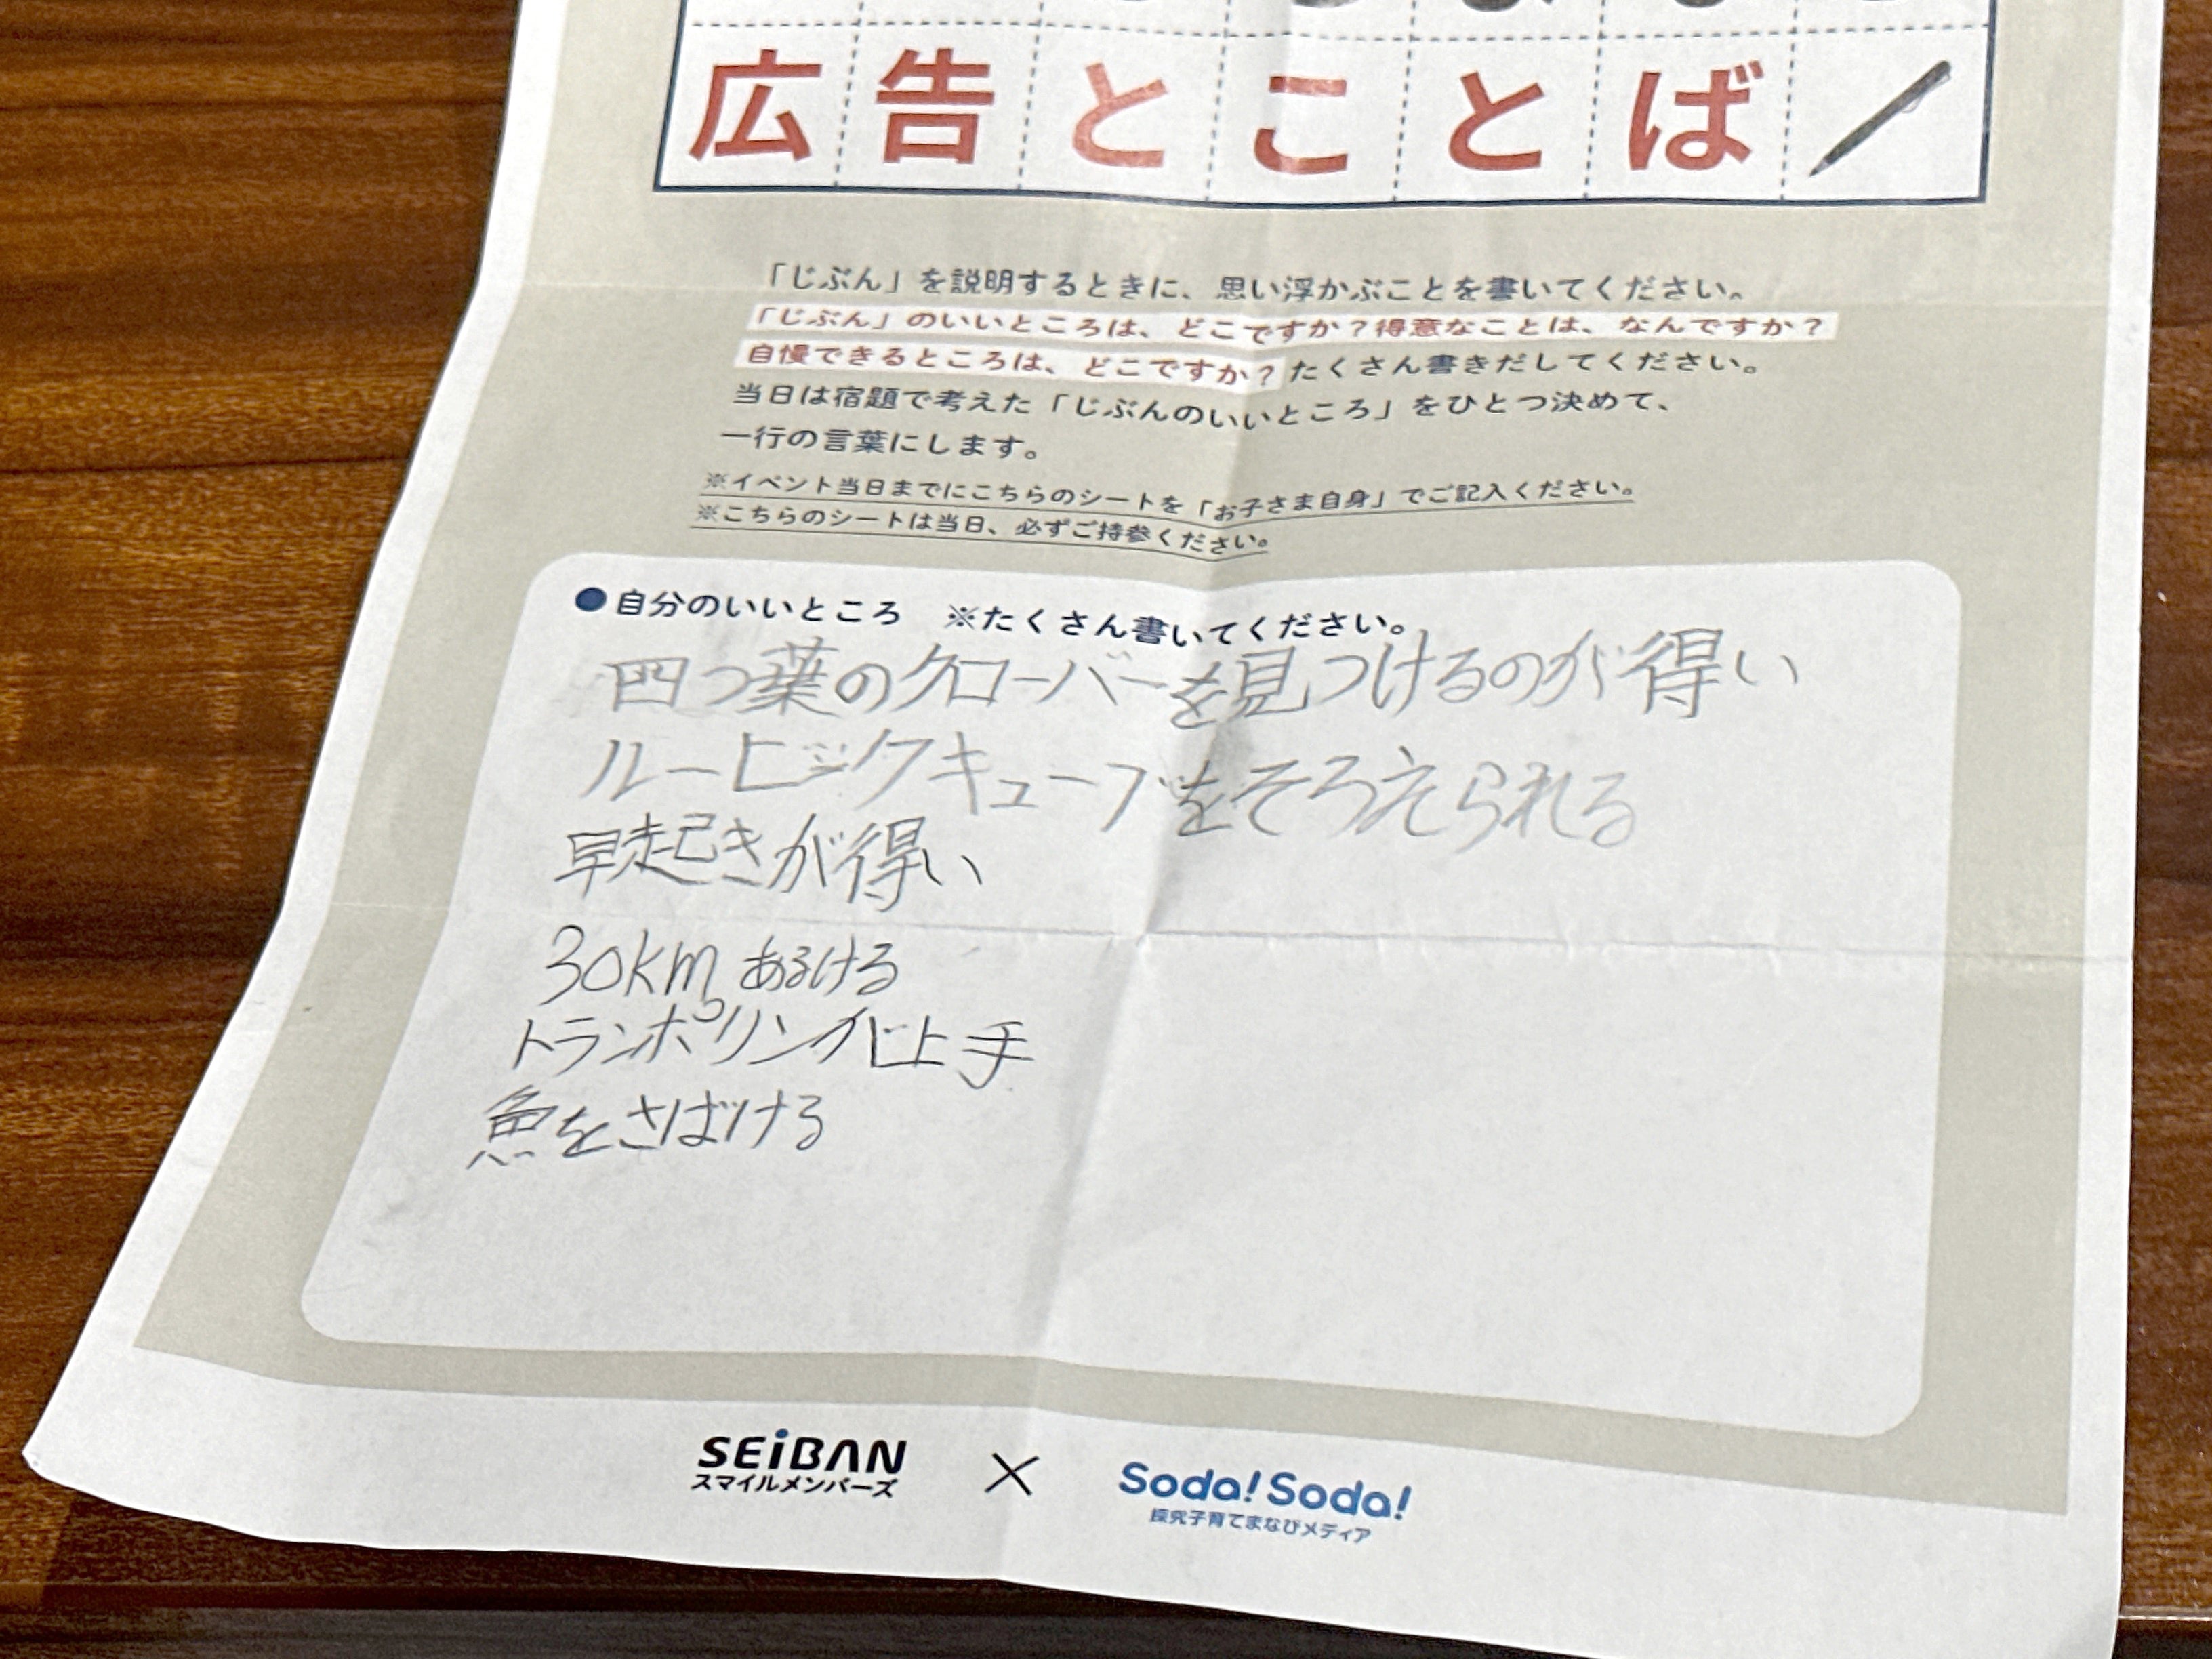 広告とことば
「じぶん」を説明するときに、思い浮かぶことを書いてください。
「じぶん」のいいところは、どこですか？得意なことは、なんですか？
自慢できるところは、どこですか？たくさん書きだしてください。
当日は宿題で考えた「じぶんのいいところ」をひとつ決めて、
一行の言葉にします。
※イベント当日までにこちらのシートを「お子さま自身」でご記入ください。
※こちらのシートは当日、必ずご持参ください。
●自分のいいところ　※たくさん書いてください。
四つ葉のクローバーを見つけるのが得い
ルービックキューブをそろえられる
早起きが得い
30km あるける
トランポリンが上手
魚をさばける
SEiBAN × Soda! Soda!
スマイルメンバーズ 探究子育てまなびメディア